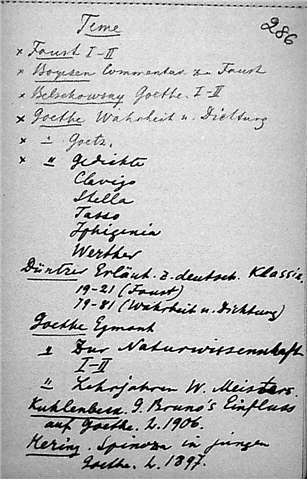 Teme
286
× Faust I-II
× Boyesen Commentar zu Faust
× Bielschowsky Goethe. I-II
× Goethe Wahrheit u. Dichtung
× " Goetz.
× " Gedichte
Clavigo
Stella
Tasso
Iphigenia
Werther
Düntzer Erläut. z. deutsch. Klassik.
19-21 (Faust)
79-81 (Wahrheit u. Dichtung)
Goethe Egmont
" Zur Naturwissenschaft
I-II
" Lehrjahren W. Meisters.
Kuhlenbeck. G. Bruno's Einfluss
auf Goethe. L. 1906.
Hering. Spinoza in jungen
Goethe. L. 1897.